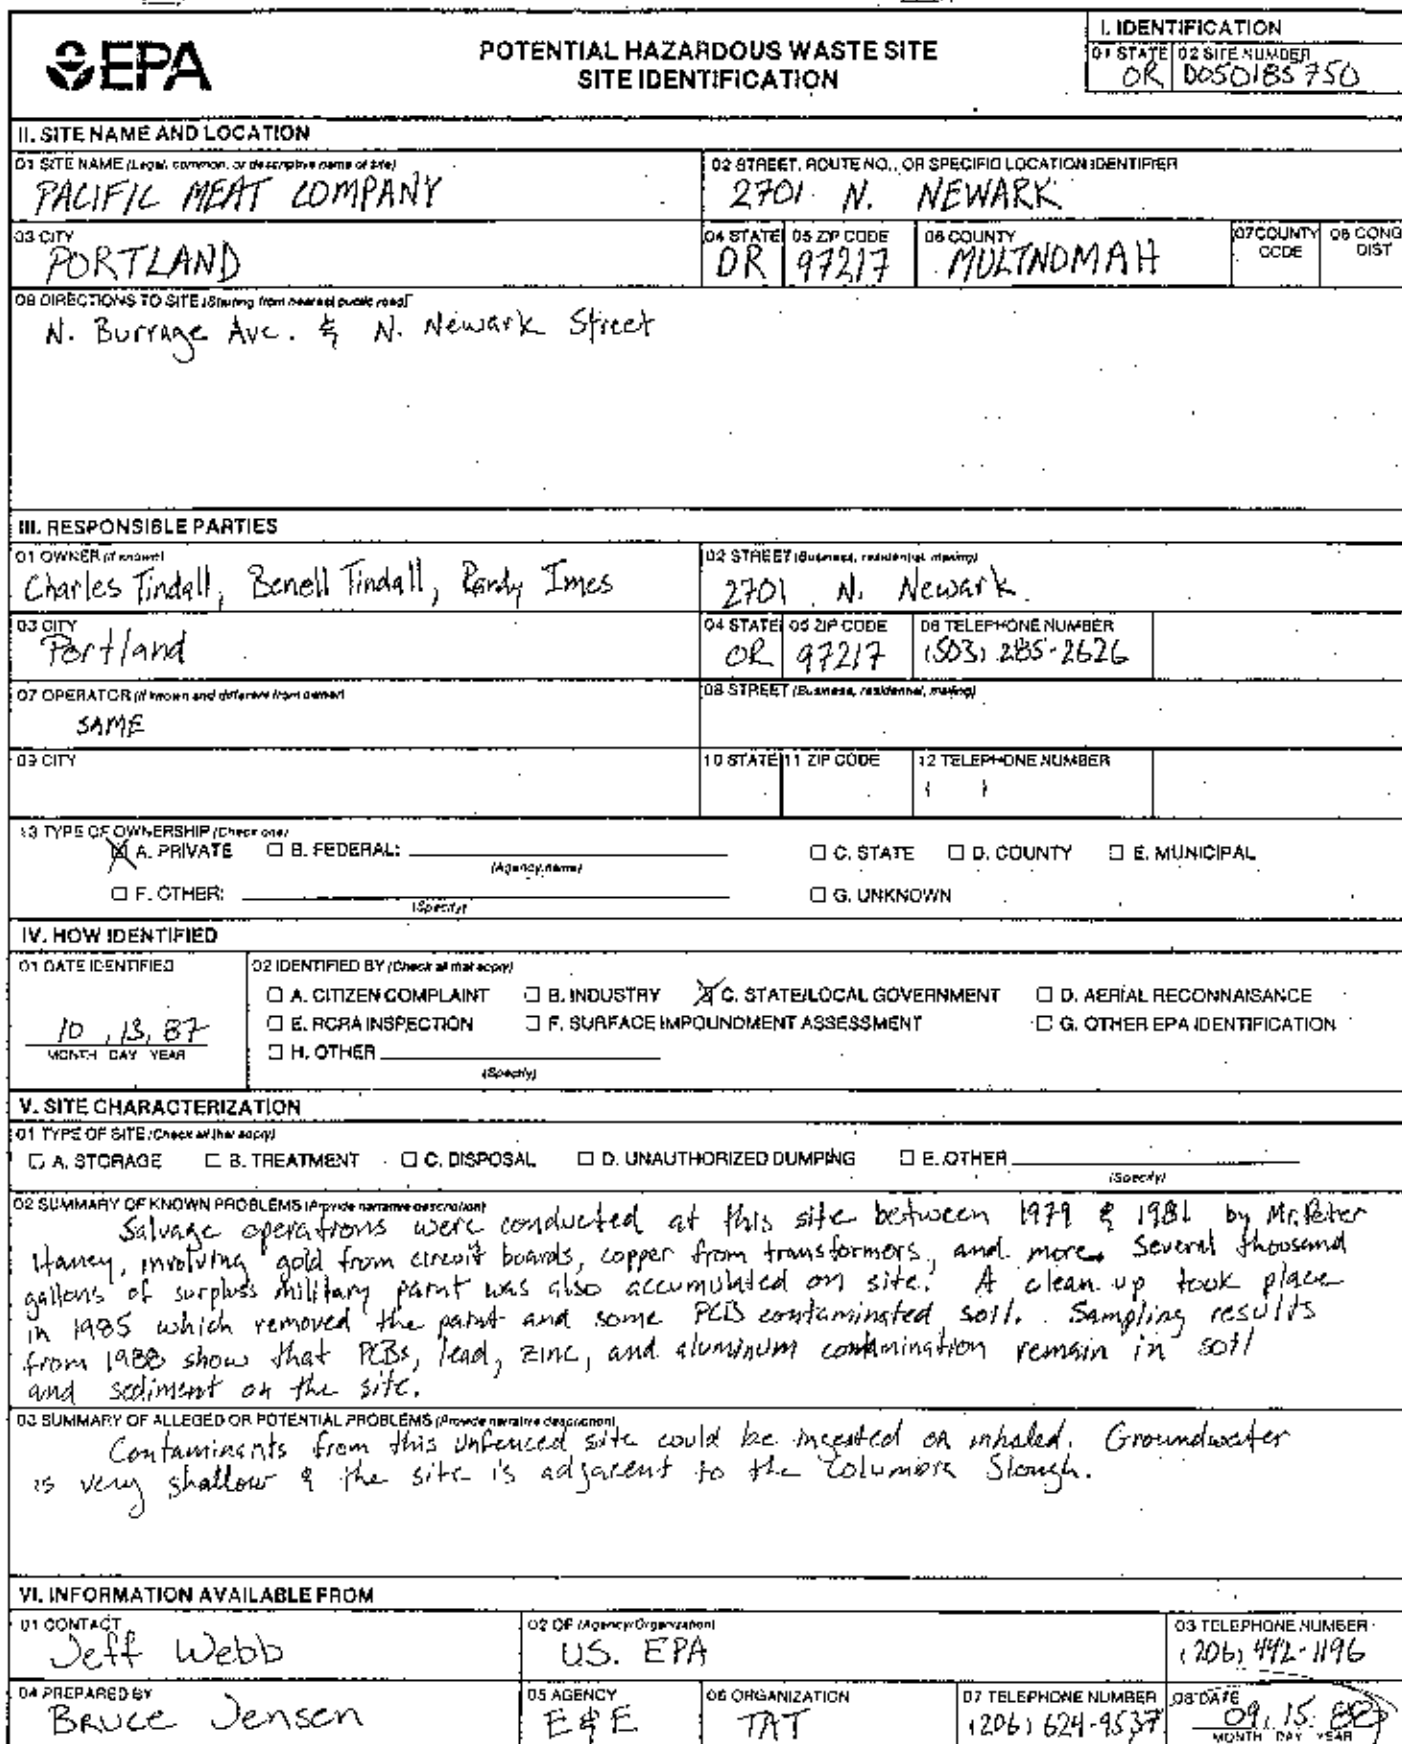 EPA
POTENTIAL HAZARDOUS WASTE SITE
SITE IDENTIFICATION
I. IDENTIFICATION
01 STATE 02 SITE NUMBER
OR D050185750
II. SITE NAME AND LOCATION
01 SITE NAME (Legal, common, or descriptive name of site) 02 STREET, ROUTE NO., OR SPECIFIC LOCATION IDENTIFIER
PACIFIC MEAT COMPANY 2701 N. NEWARK
03 CITY 04 STATE 05 ZIP CODE 06 COUNTY 07 COUNTY CODE 08 CONG DIST
PORTLAND OR 97217 MULTNOMAH
09 DIRECTIONS TO SITE (Starting from nearest public road)
N. Burrage Ave. & N. Newark Street
III. RESPONSIBLE PARTIES
01 OWNER (if known) 02 STREET (Business, residential, mailing)
Charles Tindall, Benell Tindall, Randy Imes 2701 N. Newark
03 CITY 04 STATE 05 ZIP CODE 06 TELEPHONE NUMBER
Portland OR 97217 (503) 285-2626
07 OPERATOR (if known and different from owner) 08 STREET (Business, residential, mailing)
SAME
09 CITY 10 STATE 11 ZIP CODE 12 TELEPHONE NUMBER
( )
13 TYPE OF OWNERSHIP (Check one)
A. PRIVATE B. FEDERAL: (Agency name) C. STATE D. COUNTY E. MUNICIPAL
F. OTHER: (Specify) G. UNKNOWN
IV. HOW IDENTIFIED
01 DATE IDENTIFIED 02 IDENTIFIED BY (Check all that apply)
A. CITIZEN COMPLAINT B. INDUSTRY C. STATE/LOCAL GOVERNMENT D. AERIAL RECONNAISANCE
10, 13, 87 E. RCRA INSPECTION F. SURFACE IMPOUNDMENT ASSESSMENT G. OTHER EPA IDENTIFICATION
MONTH DAY YEAR H. OTHER
(Specify)
V. SITE CHARACTERIZATION
01 TYPE OF SITE (Check all that apply)
A. STORAGE B. TREATMENT C. DISPOSAL D. UNAUTHORIZED DUMPING E. OTHER
(Specify)
02 SUMMARY OF KNOWN PROBLEMS (Provide narrative description)
Salvage operations were conducted at this site between 1979 & 1981 by Mr. Peter
Haney, involving gold from circuit boards, copper from transformers, and more. Several thousand
gallons of surplus military paint was also accumulated on site. A clean up took place
in 1985 which removed the paint and some PCB contaminated soil. Sampling results
from 1988 show that PCBs, lead, zinc, and aluminum contamination remain in soil
and sediment on the site.
03 SUMMARY OF ALLEGED OR POTENTIAL PROBLEMS (Provide narrative description)
Contaminants from this unfenced site could be ingested or inhaled. Groundwater
is very shallow & the site is adjacent to the Columbia Slough.
VI. INFORMATION AVAILABLE FROM
01 CONTACT 02 OF (Agency/Organization) 03 TELEPHONE NUMBER
Jeff Webb US. EPA (206) 442-1196
04 PREPARED BY 05 AGENCY 06 ORGANIZATION 07 TELEPHONE NUMBER 08 DATE
Bruce Jensen E&E TAT (206) 624-9537 09, 15,
MONTH DAY YEAR